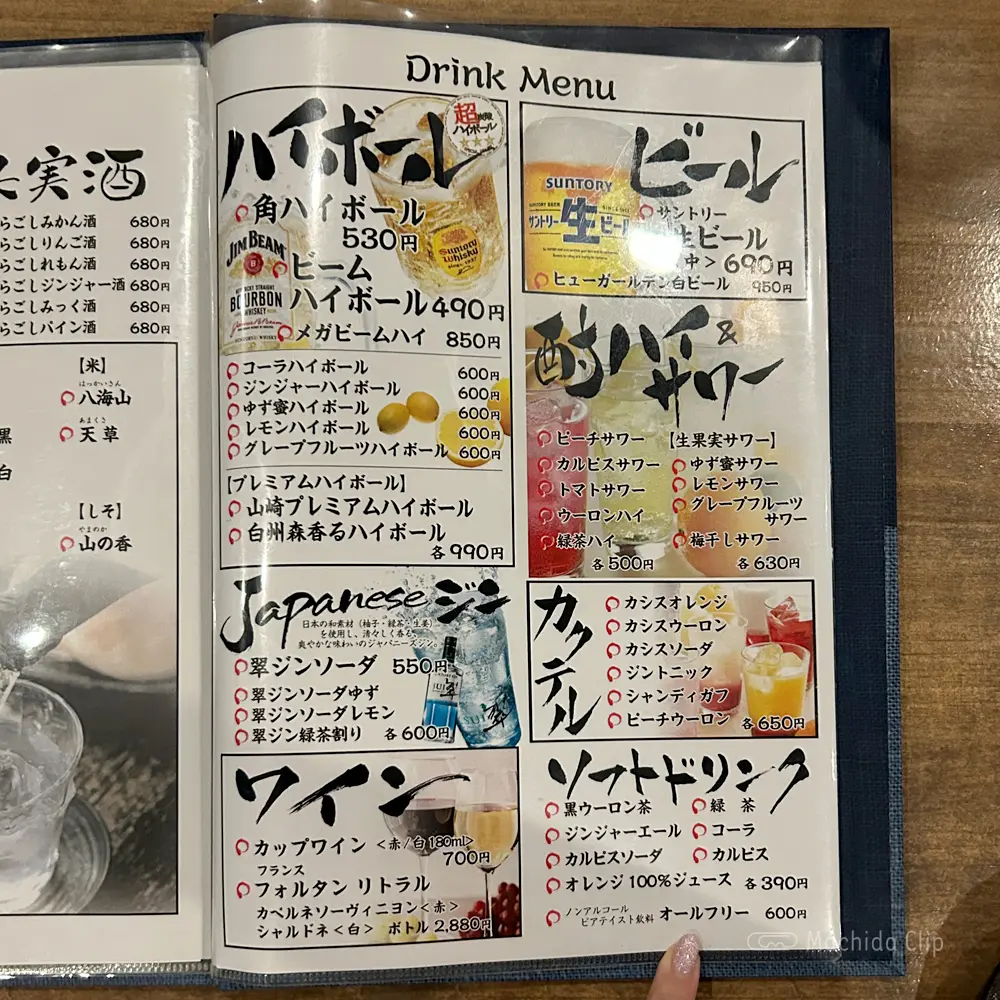 Drink Menu
実酒
らごしみかん酒 680円
らごしりんご酒 680円
らごしれもん酒 680円
らごしジンジャー酒 680円
らごしみっく酒 680円
らごしパイン酒 680円
【米】
はっかいさん
八海山
あまくさ
天草
黒
白
【しそ】
やまのか
山の香
ハイボール
超炭酸
ハイボール
角ハイボール
530円
JIM BEAM
KENTUCKY STRAIGHT
BOURBON
WHISKEY
Suntory
Whisky
ビーム
ハイボール 490円
メガビームハイ 850円
コーラハイボール 600円
ジンジャーハイボール 600円
ゆず蜜ハイボール 600円
レモンハイボール 600円
グレープフルーツハイボール 600円
【プレミアムハイボール】
山崎プレミアムハイボール
白州森香るハイボール
各990円
Japanese ジン
日本の和素材(柚子・緑茶・生姜)
を使用し、清々しく香る、
爽やかな味わいのジャパニーズジン。
翠ジンソーダ 550円
翠ジンソーダゆず
翠ジンソーダレモン
翠ジン緑茶割り 各600円
翠
ワイン
カップワイン <赤/白 180ml>
700円
フランス
フォルタン リトラル
カベルネソーヴィニヨン<赤>
シャルドネ<白> ボトル 2,880円
ビール
SUNTORY
サントリー 生 ビール
サントリー
生ビール
中> 690円
ヒューガールデン白ビール 950円
酎ハイ&
サワー
ピーチサワー
カルピスサワー
トマトサワー
ウーロンハイ
緑茶ハイ
各500円
【生果実サワー】
ゆず蜜サワー
レモンサワー
グレープフルーツ
サワー
梅干しサワー
各630円
カクテル
カシスオレンジ
カシスウーロン
カシスソーダ
ジントニック
シャンディガフ
ピーチウーロン 各650円
ソフトドリンク
黒ウーロン茶 緑 茶
ジンジャーエール コーラ
カルピスソーダ カルピス
オレンジ100%ジュース 各390円
ノンアルコール
ビアテイスト飲料 オールフリー 600円
Machida Clip